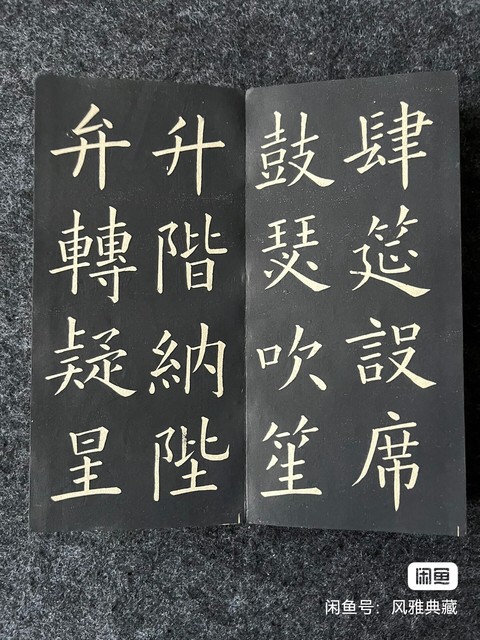 肆筵設席
鼓瑟吹笙
升階納陛
弁轉疑星
闲鱼
闲鱼号：风雅典藏